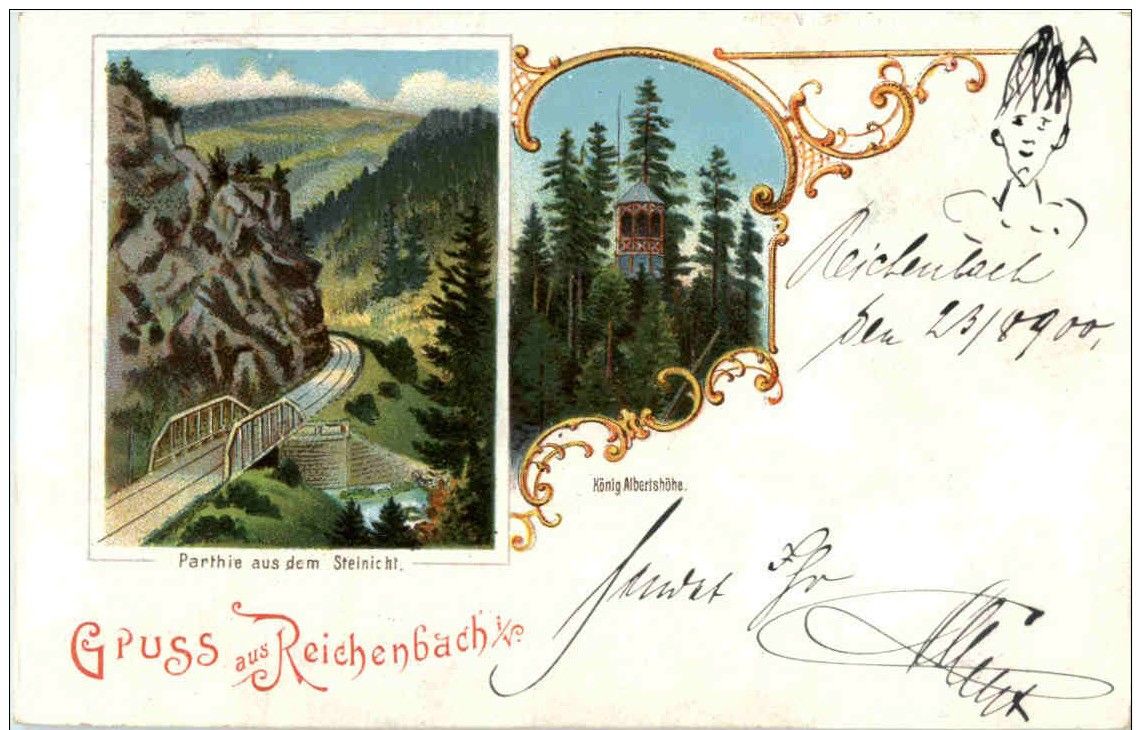 Reichenbach
den 23/8 900.
König Albertshöhe.
Parthie aus dem Steinicht.
sendet Ihr
Albert
Gruss aus Reichenbach i/V.